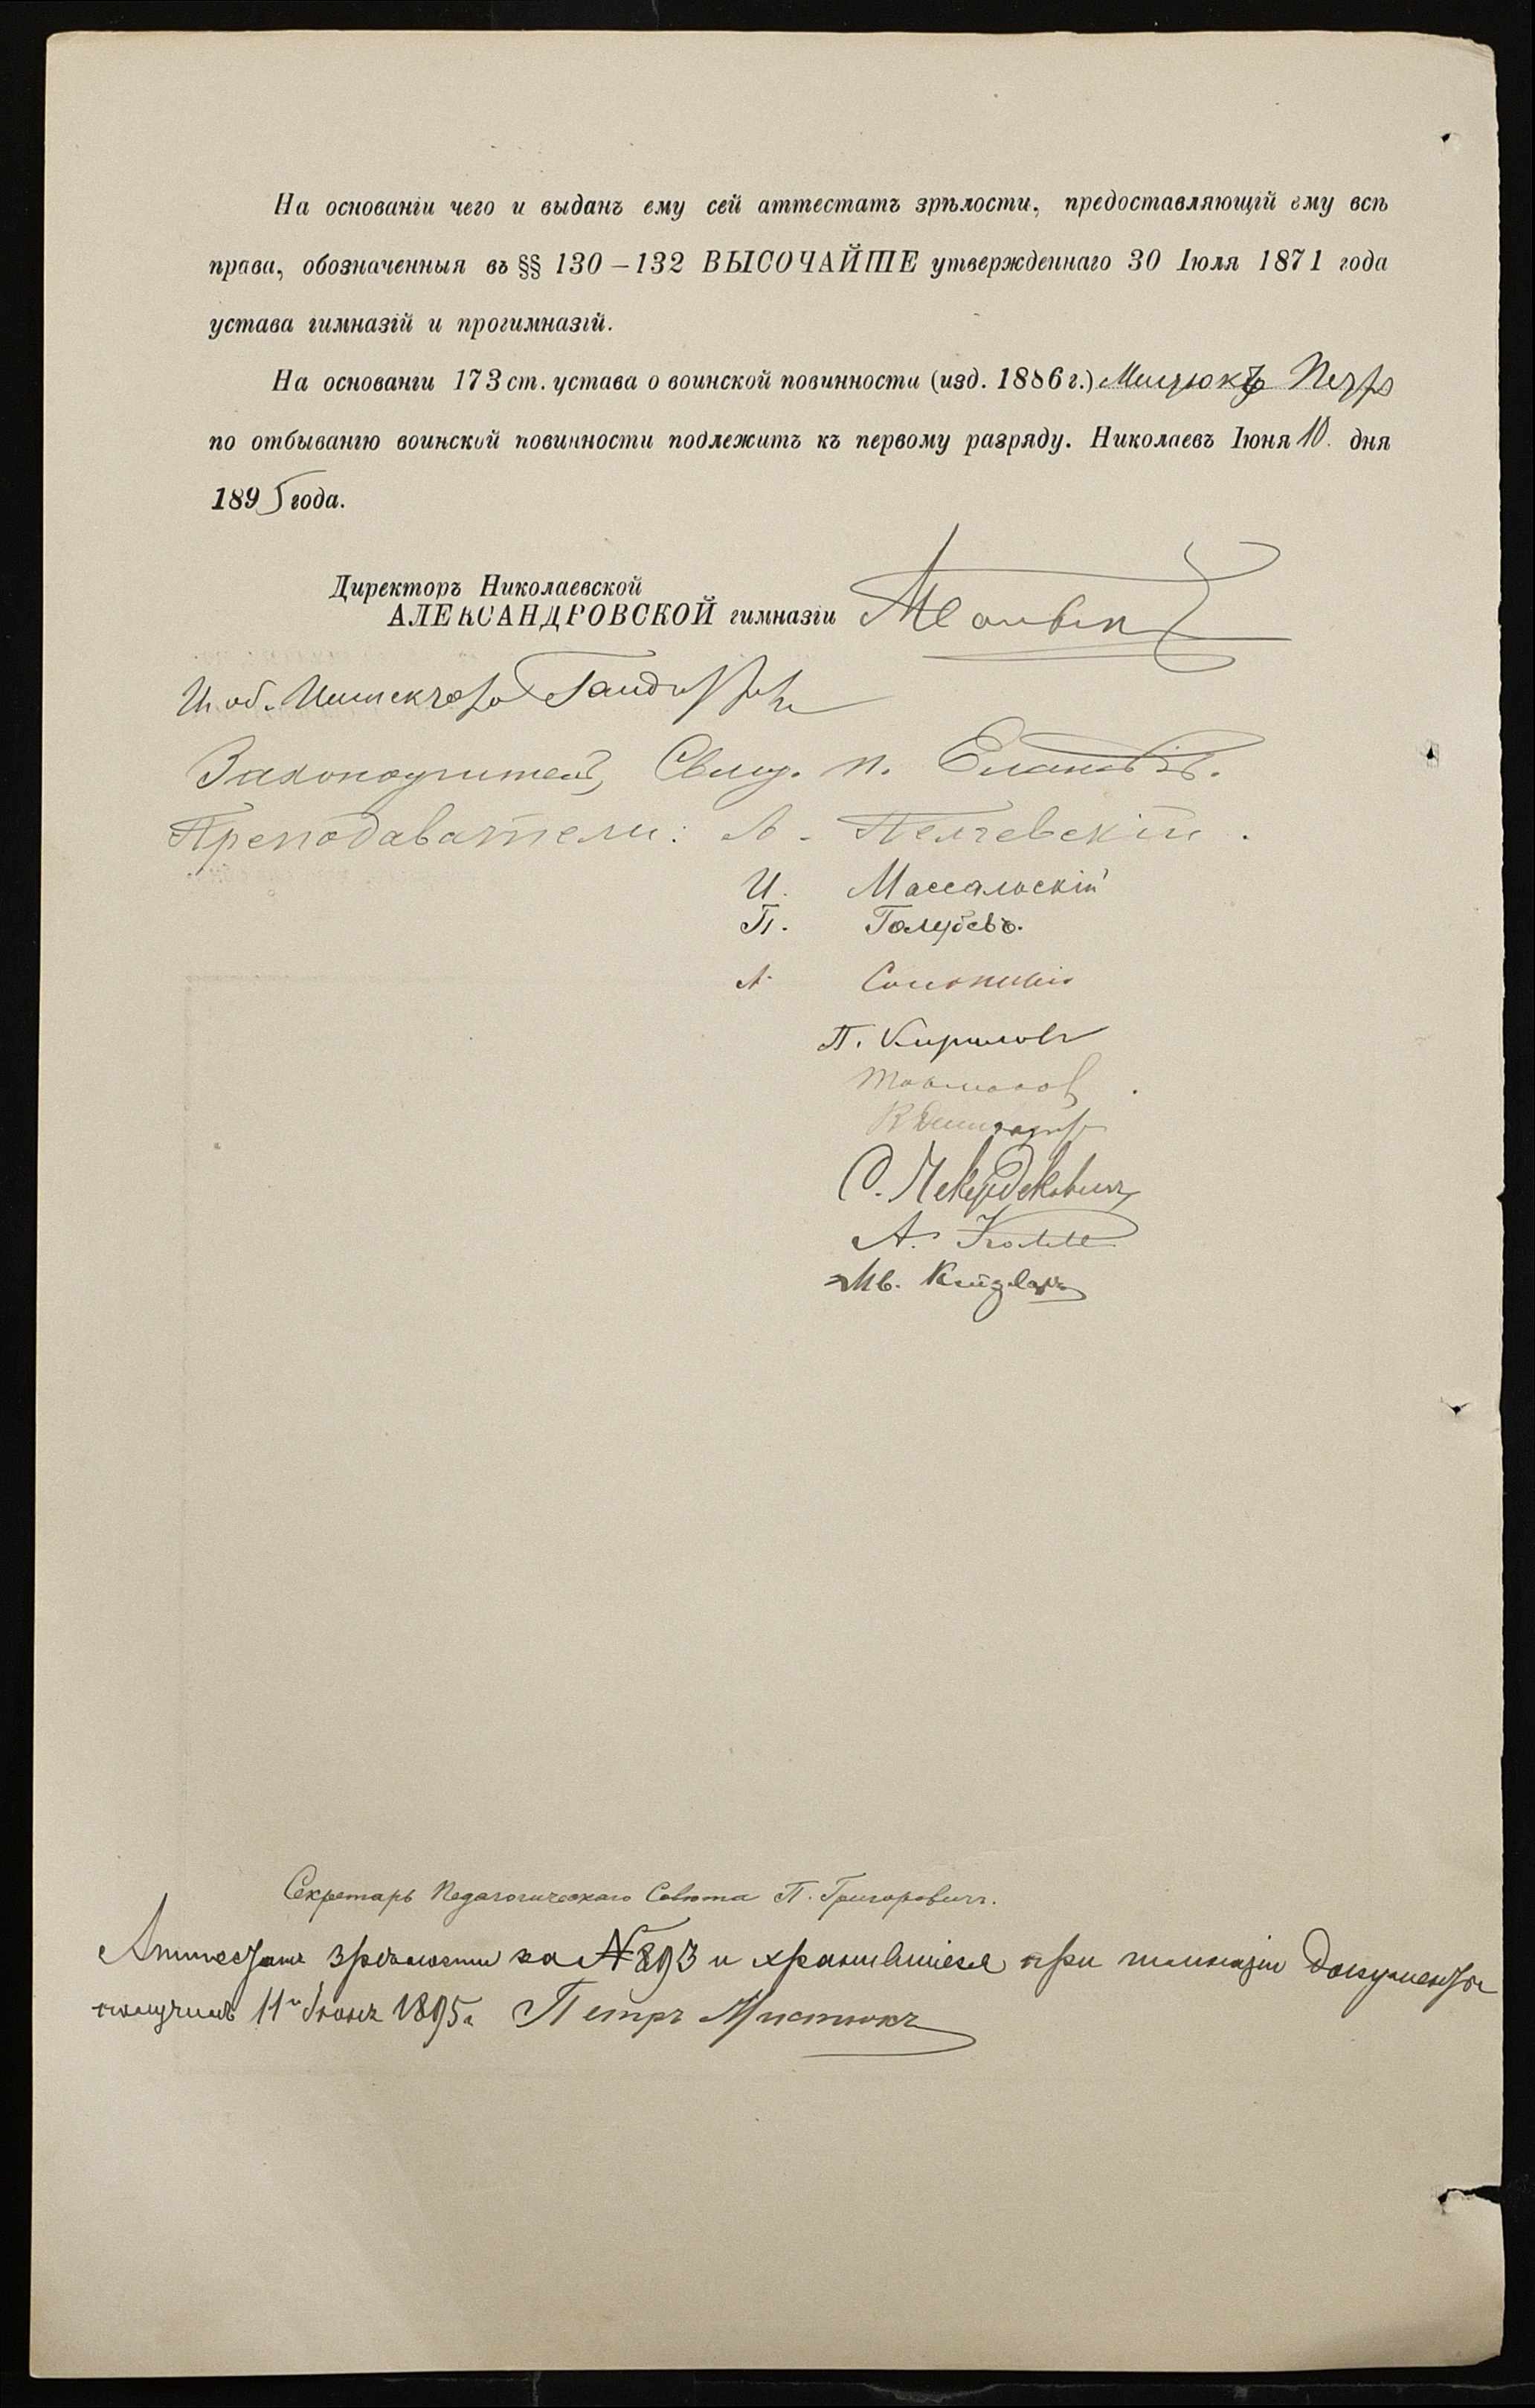 На основаніи чего и выданъ ему сей аттестатъ зрѣлости, предоставляющій ему всѣ
права, обозначенныя въ §§ 130–132 ВЫСОЧАЙШЕ утвержденнаго 30 Іюля 1871 года
устава гимназій и прогимназій.
На основаніи 173 ст. устава о воинской повинности (изд. 1886 г.) Петръ
по отбыванію воинской повинности подлежитъ къ первому разряду. Николаевъ Іюня 10 дня
1895 года.
Директоръ Николаевской
АЛЕКСАНДРОВСКОЙ гимназіи
И. об. Инспектора
Законоучитель, Свящ. п.
Преподаватели: А.
И. Массальскій
П. Голубевъ.
А.
П. Кириловъ
А.
Секретарь Педагогическаго Совѣта П. Григоровичъ.
Аттестатъ зрѣлости за № 893 и хранившіеся при гимназіи документы
получилъ 11го Іюня 1895 г. Петръ